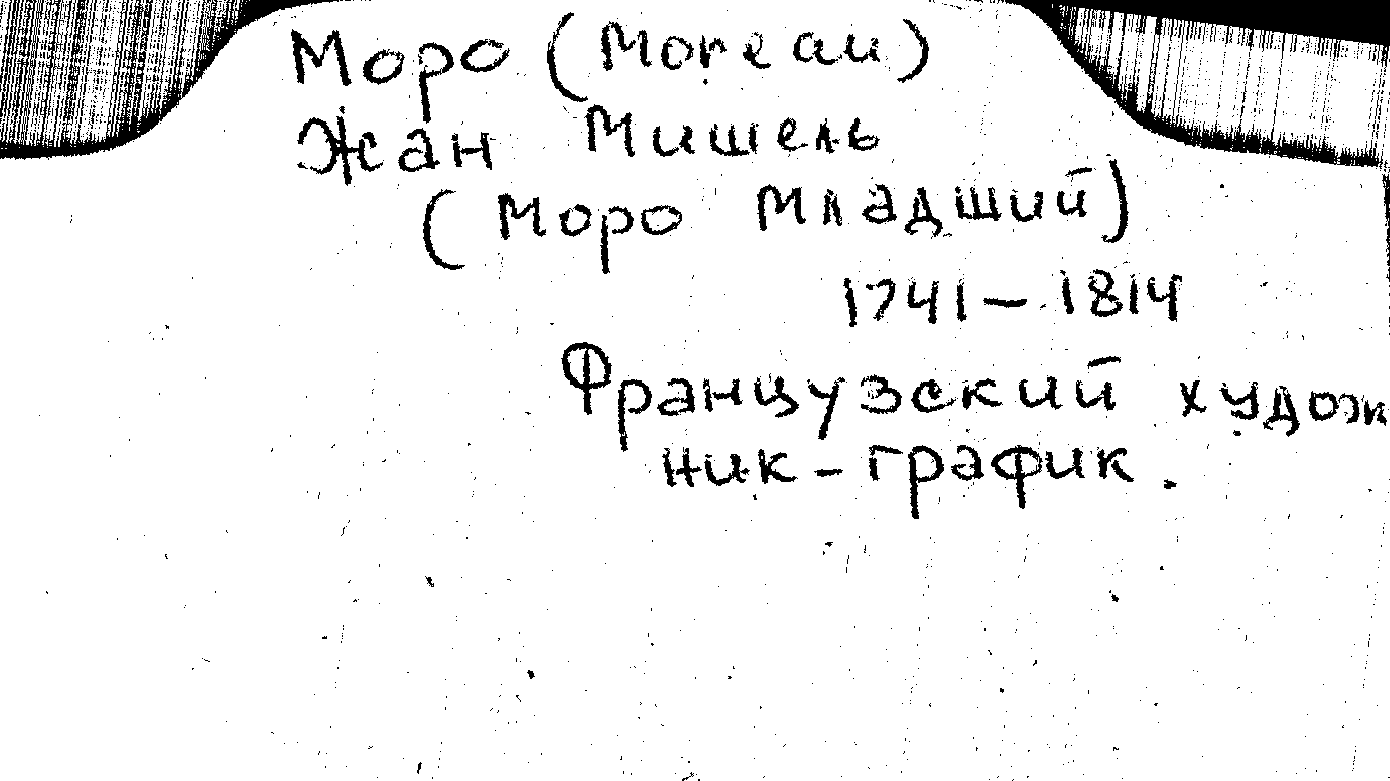 Моро (Moreau)
Жан Мишель
(Моро Младший)
1741 – 1814
Французский худож
ник - график.